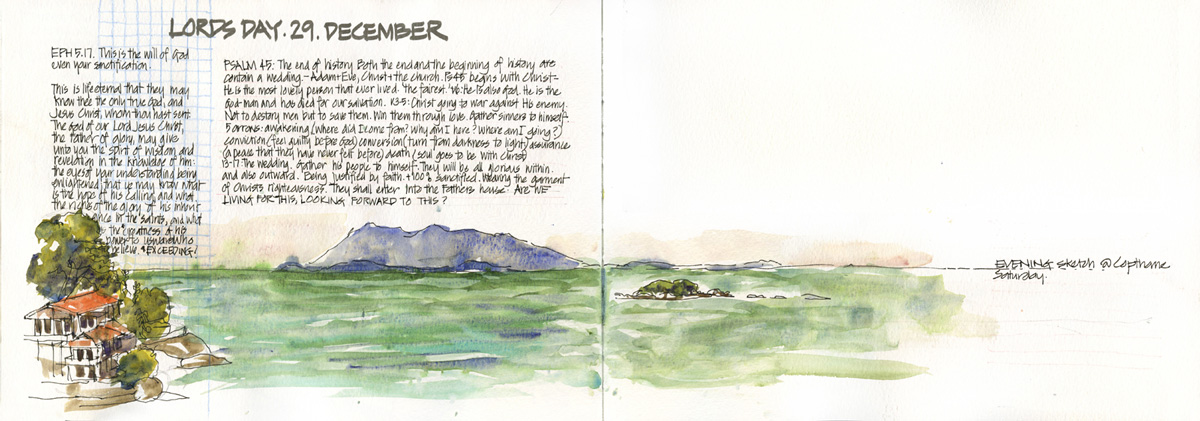 LORDS DAY. 29. DECEMBER
EPH 5.17. This is the will of God
even your sanctification.
This is life eternal that they may
know thee the only true God, and
Jesus Christ, whom thou hast sent.
The God of our Lord Jesus Christ,
the Father of glory, may give
unto you the spirit of wisdom and
revelation in the knowledge of him:
the eyes of your understanding being
enlightened; that ye may know what
is the hope of his calling, and what
the riches of the glory of his inherit
ance in the saints, and what
is the greatness of his
power to usward who
believe. *EXCEEDING!
PSALM 45: The end of history. Both the end and the beginning of history are
contain a wedding. - Adam + Eve, Christ + the church. Ps 45 begins with Christ -
He is the most lovely person that ever lived. 'The fairest.' v6: He is also God. He is the
God-man and has died for our salvation. v3-5: Christ going to war against His enemy.
Not to destroy men but to save them. Win them through love. Gather sinners to himself.
5 arrows: awakening (where did I come from? Why am I here? Where am I going?)
conviction (feel guilty before God) conversion (turn from darkness to light) assurance
(a peace that they have never felt before) death (soul goes to be with Christ)
13-17: The wedding. Gather his people to himself. They will be all glorious within
and also outward. Being justified by faith. + 100% sanctified. Wearing the garment
of Christ's righteousness. They shall enter into the Fathers house. ARE WE
LIVING FOR THIS, LOOKING FORWARD TO THIS?
EVENING sketch @ Copthorne
Saturday.